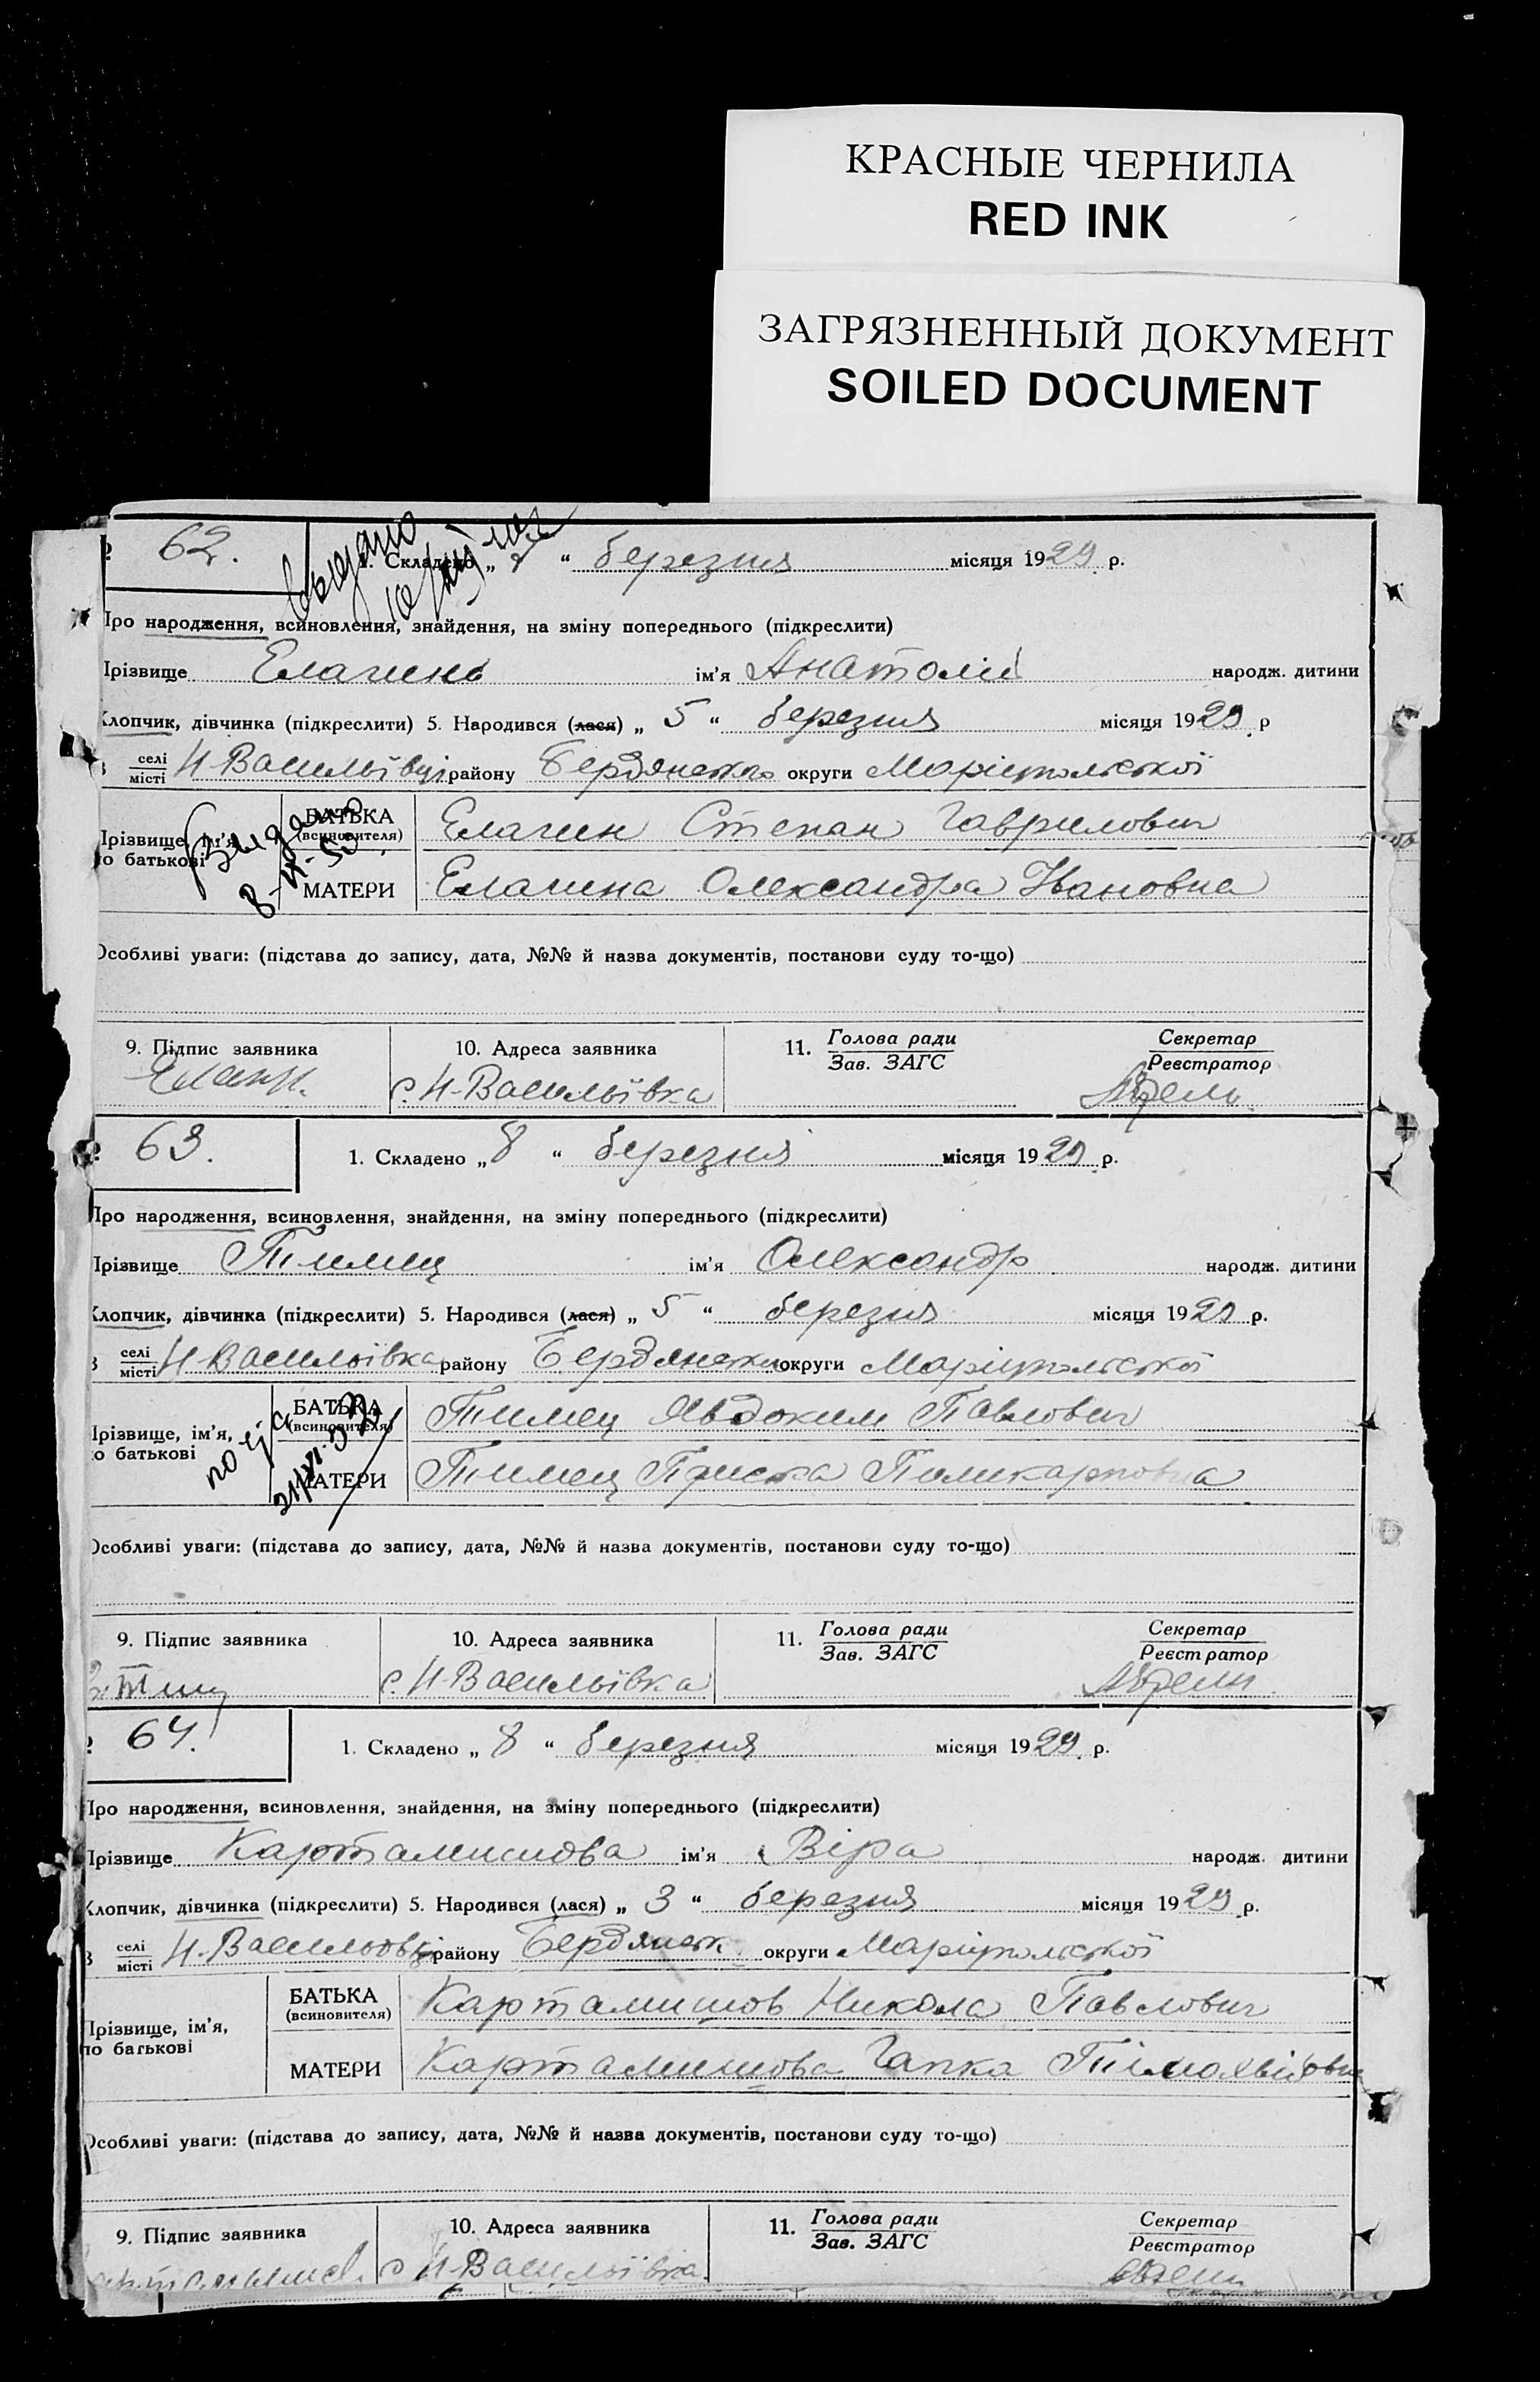 КРАСНЫЕ ЧЕРНИЛА
RED INK
ЗАГРЯЗНЕННЫЙ ДОКУМЕНТ
SOILED DOCUMENT
62. 1. Складено „ “ березня місяця 1929 р.
Про народження, всиновлення, знайдення, на зміну попереднього (підкреслити)
Прізвище Елагинь ім'я Анатолій народж. дитини
Клопчик, дівчинка (підкреслити) 5. Народився (лася) „ 5 “ березня місяця 1929 р
в селі місті Н-Васильївці району Бердянського округи Маріупольської
Прізвище, ім'я, по батькові
БАТЬКА (всиновителя) Елагин Степан Гаврилович
МАТЕРИ Елагина Олександра Івановна
Особливі уваги: (підстава до запису, дата, №№ й назва документів, постанови суду то-що)
9. Підпис заявника 10. Адреса заявника 11. Голова ради Зав. ЗАГС Секретар Реєстратор
с. Н-Васильївка
63. 1. Складено „ 8 “ березня місяця 1929 р.
Про народження, всиновлення, знайдення, на зміну попереднього (підкреслити)
Прізвище Тимец ім'я Олександр народж. дитини
Клопчик, дівчинка (підкреслити) 5. Народився (лася) „ 5 “ березня місяця 1929 р.
в селі місті Н-Васильївка району Бердянськ округи Маріупольської
Прізвище, ім'я, по батькові
БАТЬКА (всиновителя) Тимец Явдоким Павлович
МАТЕРИ Тимец Пріська Поликарповна
Особливі уваги: (підстава до запису, дата, №№ й назва документів, постанови суду то-що)
9. Підпис заявника 10. Адреса заявника 11. Голова ради Зав. ЗАГС Секретар Реєстратор
с. Н-Васильївка
64. 1. Складено „ 8 “ березня місяця 1929 р.
Про народження, всиновлення, знайдення, на зміну попереднього (підкреслити)
Прізвище Картамишова ім'я Віра народж. дитини
Клопчик, дівчинка (підкреслити) 5. Народився (лася) „ 3 “ березня місяця 1929 р.
в селі місті району Бердянськ округи Маріупольської
Прізвище, ім'я, по батькові
БАТЬКА (всиновителя) Картамишов Никола Павлович
МАТЕРИ Картамишова Гапка
Особливі уваги: (підстава до запису, дата, №№ й назва документів, постанови суду то-що)
9. Підпис заявника 10. Адреса заявника 11. Голова ради Зав. ЗАГС Секретар Реєстратор
с Н-Васильївка